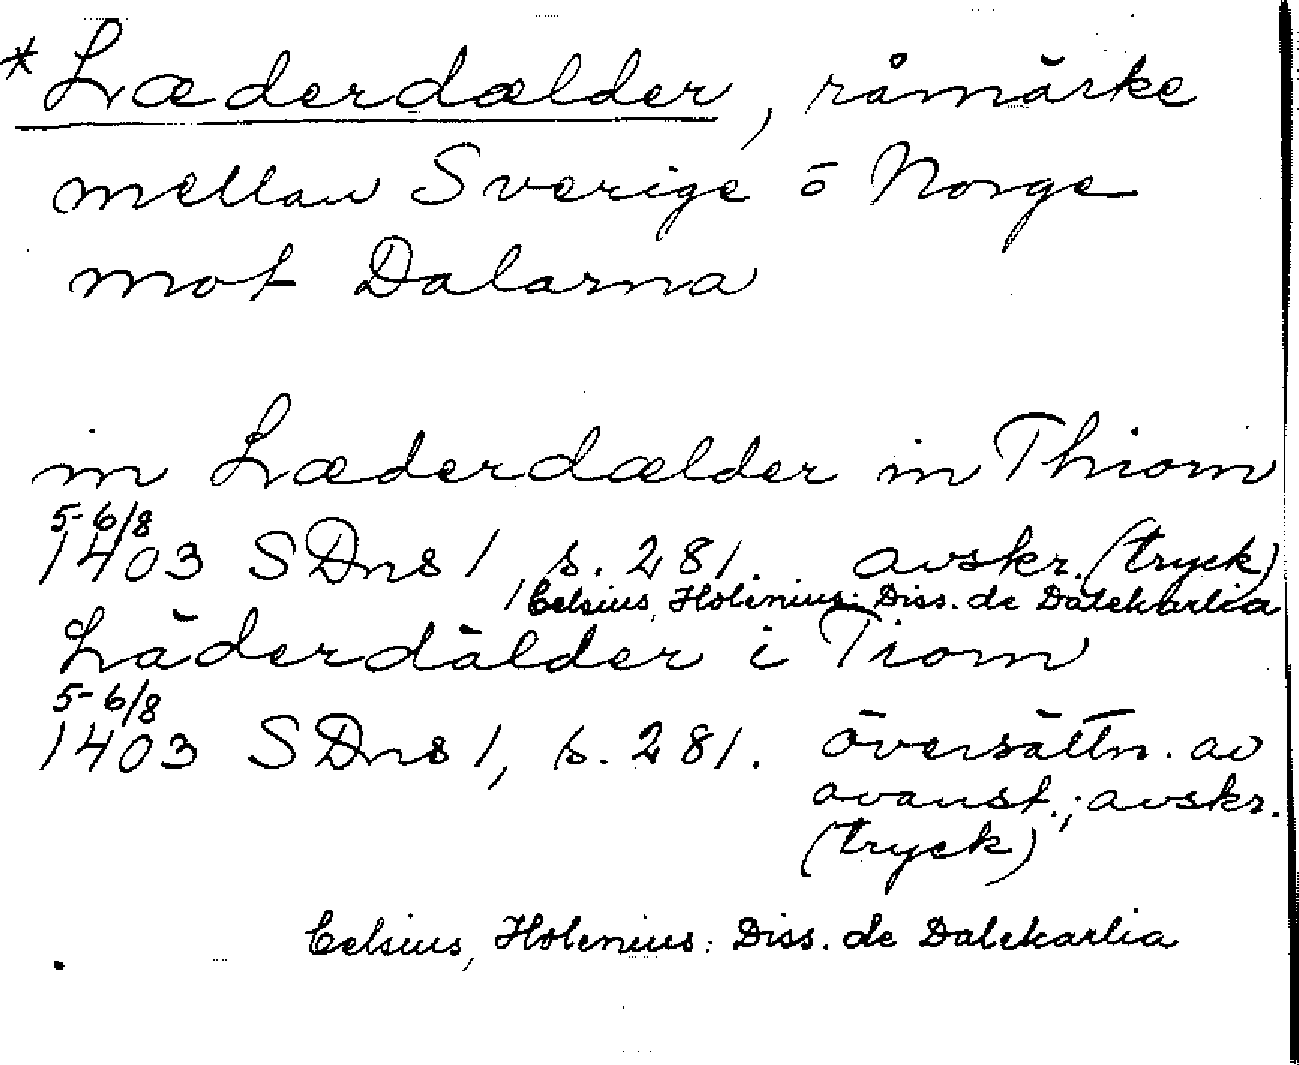 *Læderdælder, råmärke
mellan Sverige o Norge
mot Dalarna
in Læderdælder in Thiorn
5-6/8
1403 SDns 1, s. 281. avskr. (tryck)
Celsius, Holenius: Diss. de Dalekarlia
Läderdälder i Tiorn
5-6/8
1403 SDns 1, s. 281. översättn. av
ovanst.; avskr.
(tryck)
Celsius, Holenius: Diss. de Dalekarlia